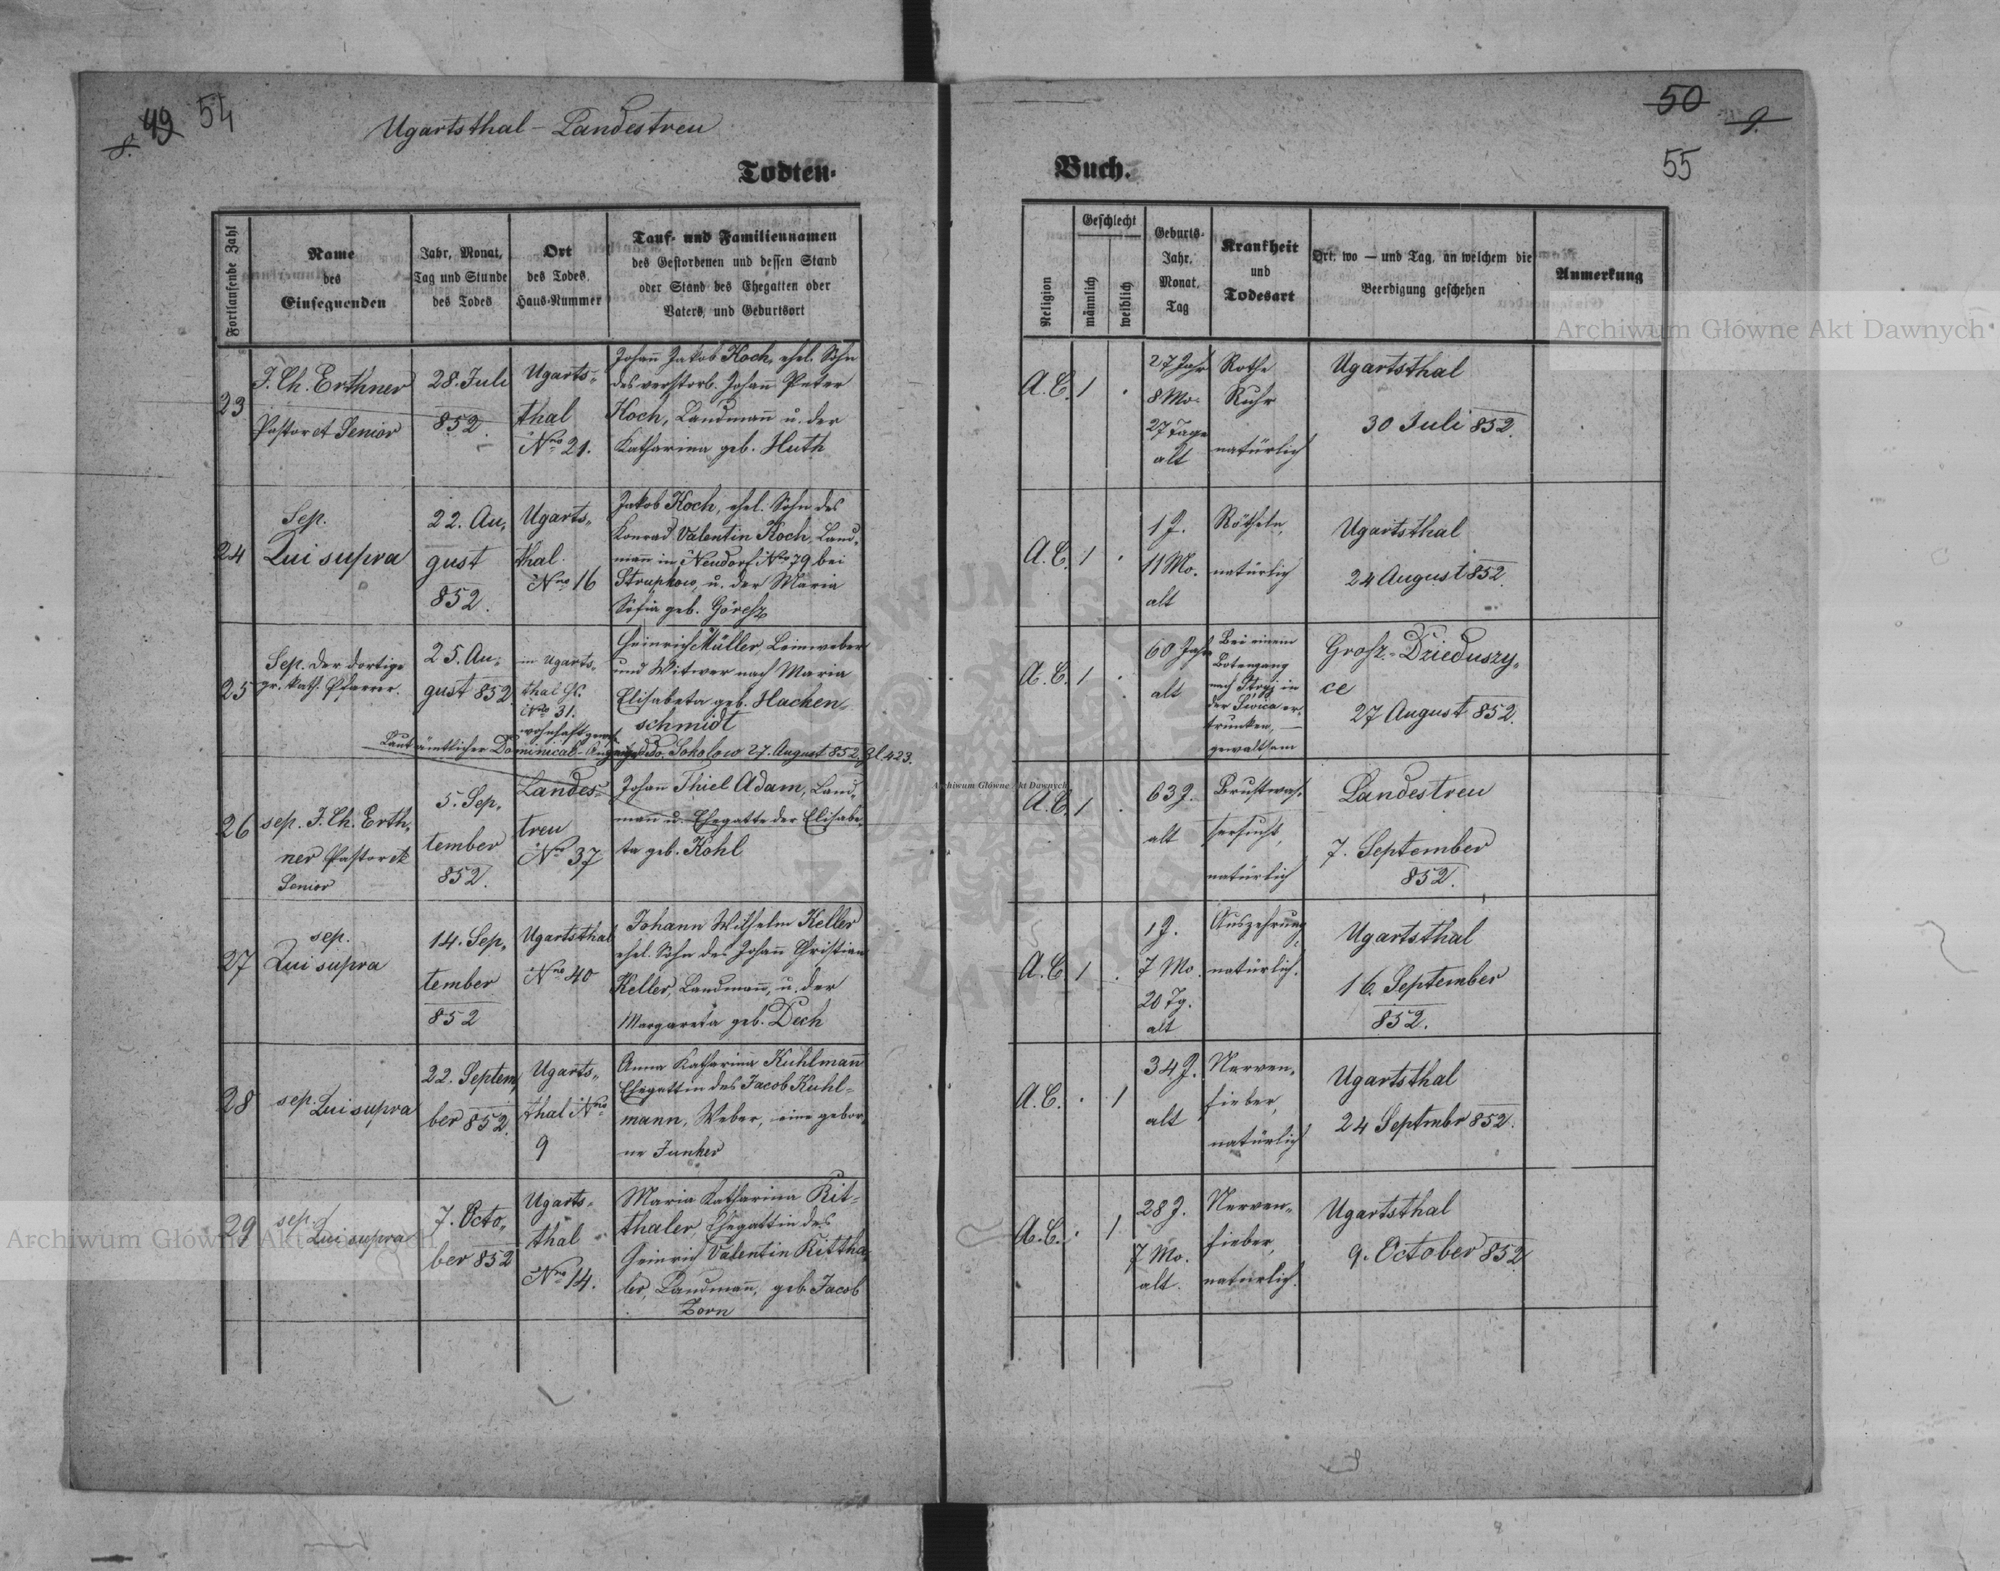 8. 49 54
Ugartsthal - Landestreu
Todten-
Fortlaufende Zahl
Name
des
Einsegnenden
Jahr, Monat,
Tag und Stunde
des Todes
Ort
des Todes,
Haus-Nummer
Tauf- und Familiennamen
des Gestorbenen und dessen Stand
oder Stand des Ehegatten oder
Vaters, und Geburtsort
23
J. Ch. Erthner
Pastor et Senior
28. Juli
852.
Ugarts-
thal
Nro 21.
Johann Jakob Koch, ehel. Sohn
des verstorb. Johann Peter
Koch, Landmann u. der
Katharina geb. Huth
24
Sep.
Qui supra
22. Au-
gust
852.
Ugarts-
thal
Nro 16
Jakob Koch, ehel. Sohn des
Konrad Valentin Koch, Land-
mann in Neudorf Nro 79 bei
u. der Maria
Sofia geb.
25
Sep. der dortige
gr. kath. Pfarrer.
25. Au-
gust 852.
in Ugarts-
thal
Nro 31.
wohnhaft
Heinrich Müller, Leinweber
und Witwer nach Maria
Elisabeta geb. Hacken
schmidt
Laut ämtlicher Dominical- Sokolow 27. August 852. Zl 423.
26
sep. J. Ch. Erth-
ner Pastor et
Senior
5. Sep-
tember
852.
Landes-
treu
Nro 37
Johann Thiel Adam, Land-
mann u. Ehegatte der Elisabe-
ta geb. Kohl
27
sep.
Qui supra
14. Sep-
tember
852
Ugartsthal
Nro 40
Johann Wilhelm Keller
ehel. Sohn des Johann Christian
Keller, Landmann, u. der
Margareta geb. Dech
28
sep. Qui supra
22. Septem
ber 852.
Ugarts-
thal Nro
9
Anna Katharina Kuhlmann
Ehegattin des Jacob Kuhl-
mann, Weber, eine gebor-
ne Junker
29
sep.
Qui supra
7. Octo-
ber 852
Ugarts-
thal
Nro 14.
Maria Katharina Rit-
thaler, Ehegattin des
Heinrich Valentin Rittha-
ler, Landmann, geb. Jacob
Zorn
50 9.
55
Buch.
Religion
Geschlecht
männlich
weiblich
Geburts-
Jahr,
Monat,
Tag
Krankheit
und
Todesart
Ort, wo — und Tag, an welchem die
Beerdigung geschehen
Anmerkung
A. C. 1 .
27 Jahr
8 Mo.
27 Tage
alt
Rothe
Ruhr
natürlich
Ugartsthal
30 Juli 852.
A. C. 1 .
1 J.
11 Mo.
alt
Rötheln,
natürlich
Ugartsthal
24 August 852.
A. C. 1 .
60 Jahr
alt
Bei einem
Botengang
nach Stryj in
der Swica er-
trunken,
gewaltsam
Grosz-Dzieduszy-
ce
27 August 852.
A. C. 1 .
63 J.
alt
Brustwas-
sersucht,
natürlich
Landestreu
7. September
852.
A. C. 1 .
1 J.
7 Mo.
20 Tg.
alt
Auszehrung,
natürlich.
Ugartsthal
16. September
852.
A. C. . 1
34 J.
alt
Nerven-
fieber,
natürlich
Ugartsthal
24 Septmbr 852.
A. C. . 1.
28 J.
7 Mo.
alt.
Nerven-
fieber,
natürlich.
Ugartsthal
9. October 852
Archiwum Główne Akt Dawnych
Archiwum Główne Akt Dawnych
Archiwum Główne Akt Dawnych